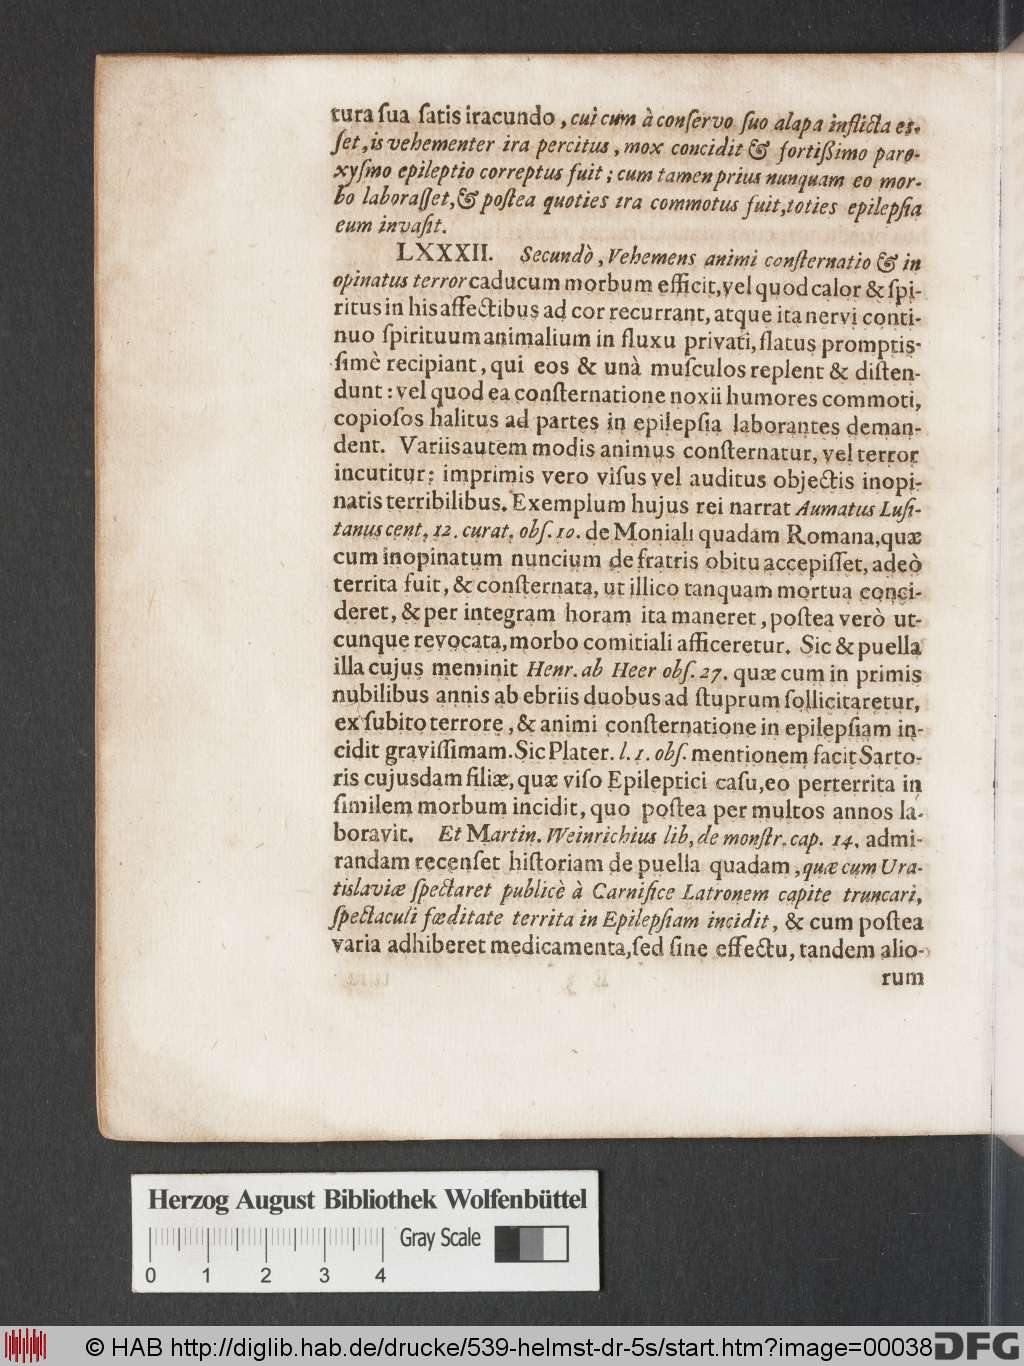 tura ſua ſatis iracundo, cui cum à conſervo ſuo alapa inflicta eſ-
ſet, is vehementer ira percitus, mox concidit & fortißimo paro-
xyſmo epileptio correptus fuit; cum tamen prius nunquam eo mor-
bo laboraſſet, & poſtea quoties ira commotus fuit, toties epilepſia
eum invaſit.
LXXXII. Secundò, Vehemens animi conſternatio & in
opinatus terror caducum morbum efficit, vel quod calor & ſpi-
ritus in his affectibus ad cor recurrant, atque ita nervi conti-
nuo ſpirituum animalium in fluxu privati, flatus promptiſ-
ſimè recipiant, qui eos & unà muſculos replent & diſten-
dunt: vel quod ea conſternatione noxii humores commoti,
copioſos halitus ad partes in epilepſia laborantes deman-
dent. Variis autem modis animus conſternatur, vel terror
incutitur; imprimis vero viſus vel auditus objectis inopi-
natis terribilibus. Exemplum hujus rei narrat Aumatus Luſi-
tanus cent. 12. curat. obſ. 10. de Moniali quadam Romana, quæ
cum inopinatum nuncium de fratris obitu accepiſſet, adeò
territa fuit, & conſternata, ut illico tanquam mortua conci-
deret, & per integram horam ita maneret, poſtea verò ut-
cunque revocata, morbo comitiali afficeretur. Sic & puella
illa cujus meminit Henr. ab Heer obſ. 27. quæ cum in primis
nubilibus annis ab ebriis duobus ad ſtuprum ſollicitaretur,
ex ſubito terrore, & animi conſternatione in epilepſiam in-
cidit graviſſimam. Sic Plater. l. 1. obſ. mentionem facit Sarto-
ris cujusdam filiæ, quæ viſo Epileptici caſu, eo perterrita in
ſimilem morbum incidit, quo poſtea per multos annos la-
boravit. Et Martin. Weinrichius lib. de monſtr. cap. 14. admi-
randam recenſet hiſtoriam de puella quadam, quæ cum Ura-
tislaviæ ſpectaret publicè à Carnifice Latronem capite truncari,
ſpectaculi fœditate territa in Epilepſiam incidit, & cum poſtea
varia adhiberet medicamenta, ſed ſine effectu, tandem alio-
rum
Herzog August Bibliothek Wolfenbüttel
Gray Scale
0 1 2 3 4
© HAB http://diglib.hab.de/drucke/539-helmst-dr-5s/start.htm?image=00038
DFG